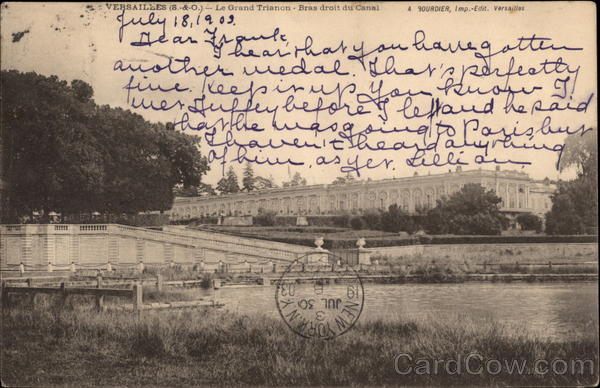 VERSAILLES (S.-&-O.) — Le Grand Trianon - Bras droit du Canal
A BOURDIER, Imp.-Edit. Versailles
July 18, 1903.
Dear Frank,
I hear that you have gotten
another medal. That's perfectly
fine. Keep it up. You know I
met Tuffey before I left and he said
that he was going to Paris but
I haven't heard anything
of him, as yet. Lillian
NEW YORK
JUL 30
03
CardCow.com